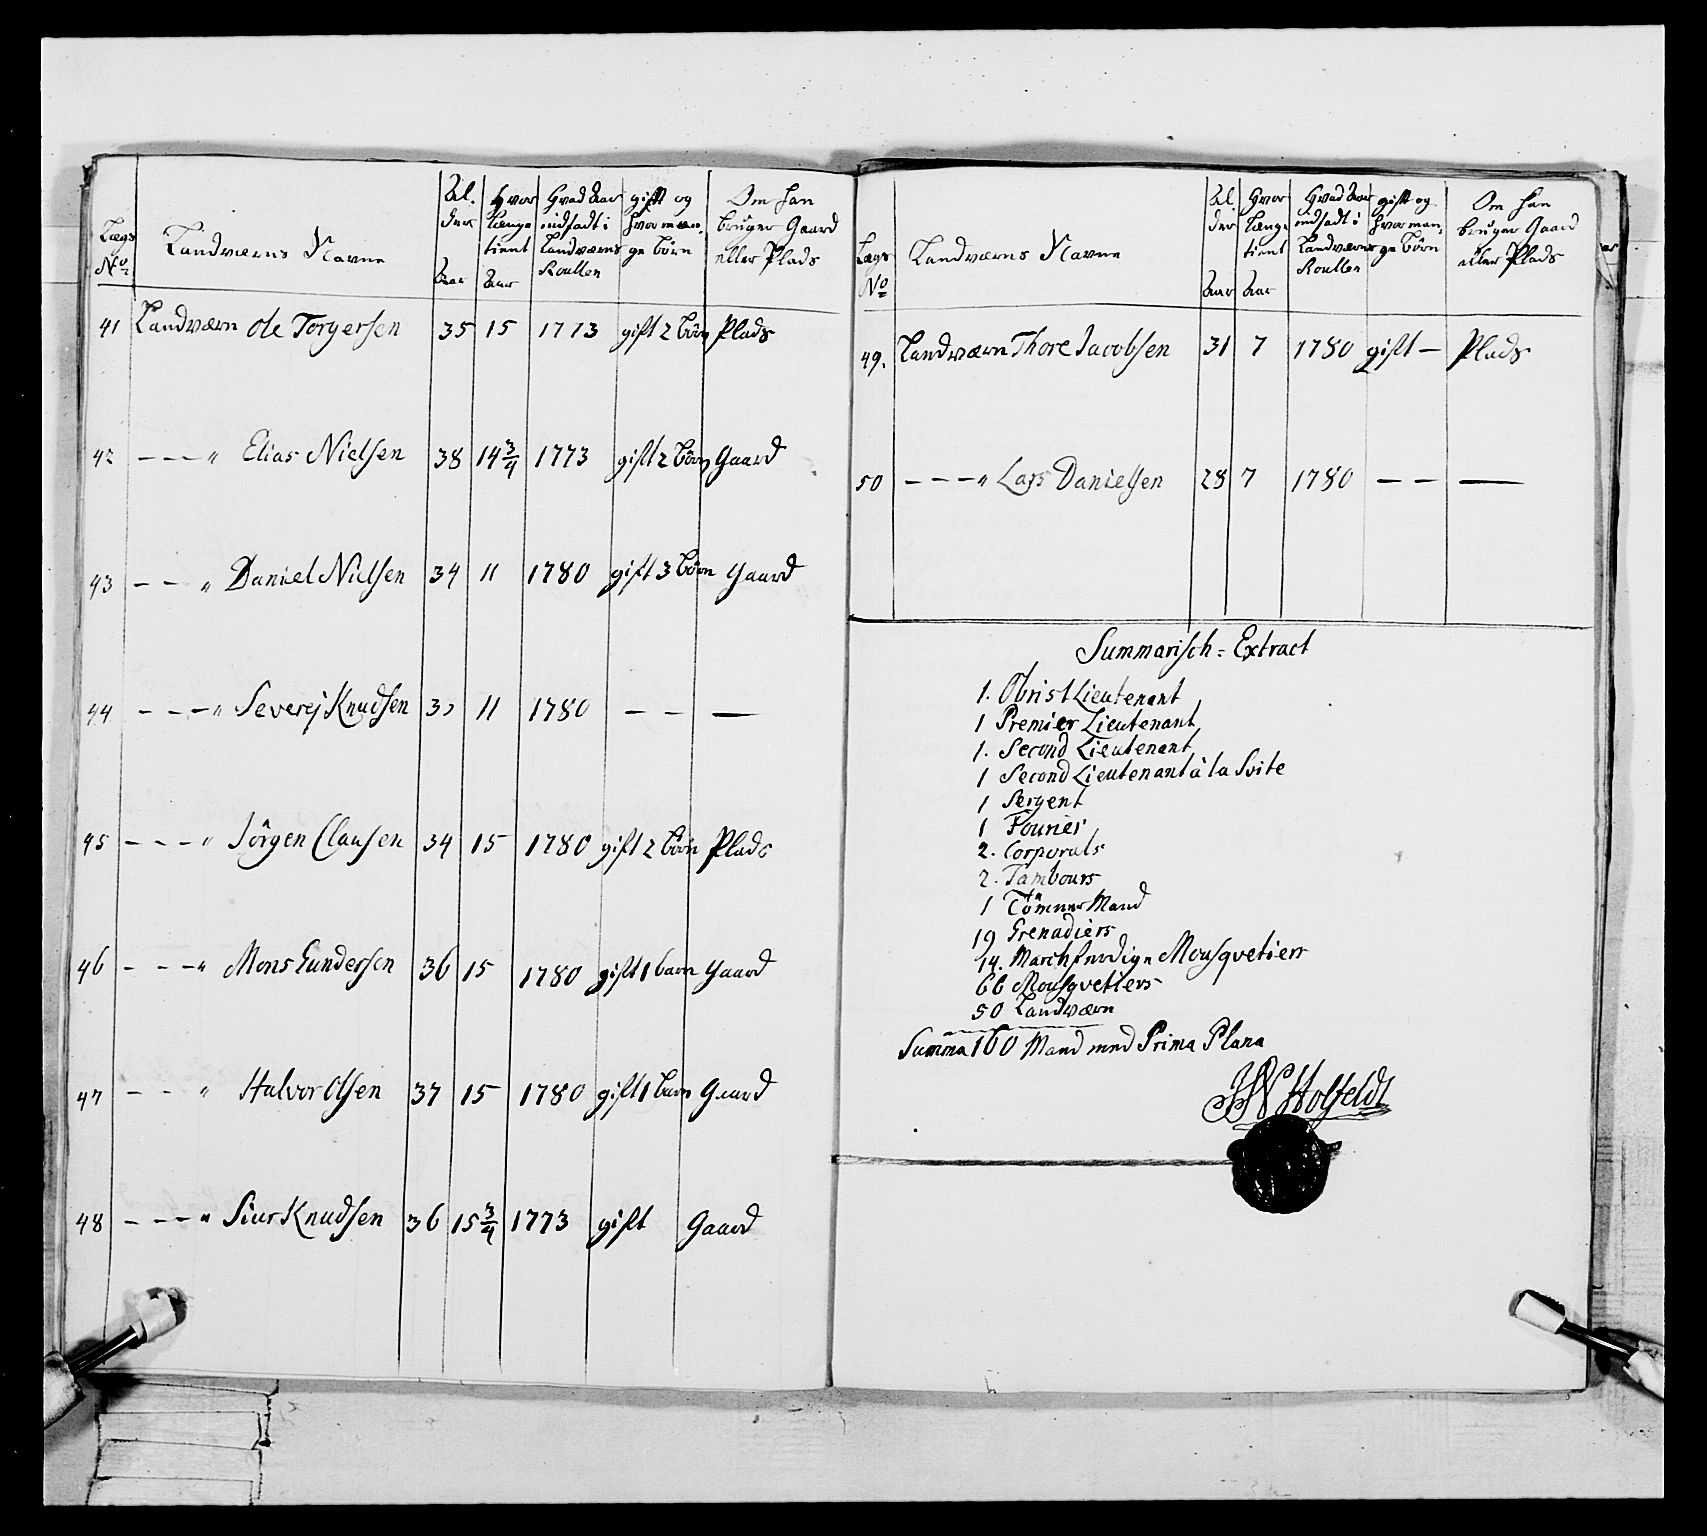 Lægs No
Landværns Navne
Alder Aar
Hvor længe tient Aar
Hvad Aar indsadt i Landværns Roullen
gift og hvor mange børn
Om han bruger Gaard eller Plads
41 Landværn Ole Torgersen 35 15 1773 gift 2 børn Plads
42 — — — " Elias Nielsen 38 14 3/4 1773 gift 2 børn Gaard
43 — — " Daniel Nielsen 34 11 1780 gift 3 børn Gaard
44 — — — " Severej Knudsen 11 1780 — — —
45 — — — " Jörgen Clausen 34 15 1780 gift 2 børn Plads
46 — — — " Mons Gundersen 36 15 1780 gift 1 barn Gaard
47 — — " Halvor Olsen 37 15 1780 gift 1 barn Gaard
48 — — — " Siur Knudsen 36 15 3/4 1773 gift Gaard
Lægs No
Landværns Navne
Alder Aar
Hvor længe tient Aar
Hvad Aar indsadt i Landværns Roullen
gift og hvor mange børn
Om han bruger Gaard eller Plads
49. Landværn Thore Jacobsen 31 7 1780 gift — Plads
50 — — — " Lars Danielsen 28 7 1780 — — —
Summarisch = Extract
1. Obrist Lieutenant
1 Premier Lieutenant
1. Second Lieutenant
1 Second Lieutenant à la Svite
1 Sergent
1 Fourier
2. Corporals
2. Tambours
1 Tömmer Mand
19 Grenadiers
14. Marchfærdige Mousqvetiers
66 Mousqvetiers
50 Landværn
Summa 160 Mand med Prima Plana
Holfeldt